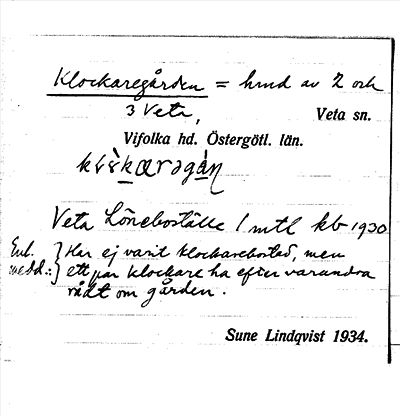 Klockaregården = hmd av 2 och
3 Veta, Veta sn.
Vifolka hd. Östergötl. län.
Veta Löneboställe 1 mtl kb 1930
Enl. medd.: Har ej varit klockarebostad, men
ett par klockare ha efter varandra
rått om gården.
Sune Lindqvist 1934.